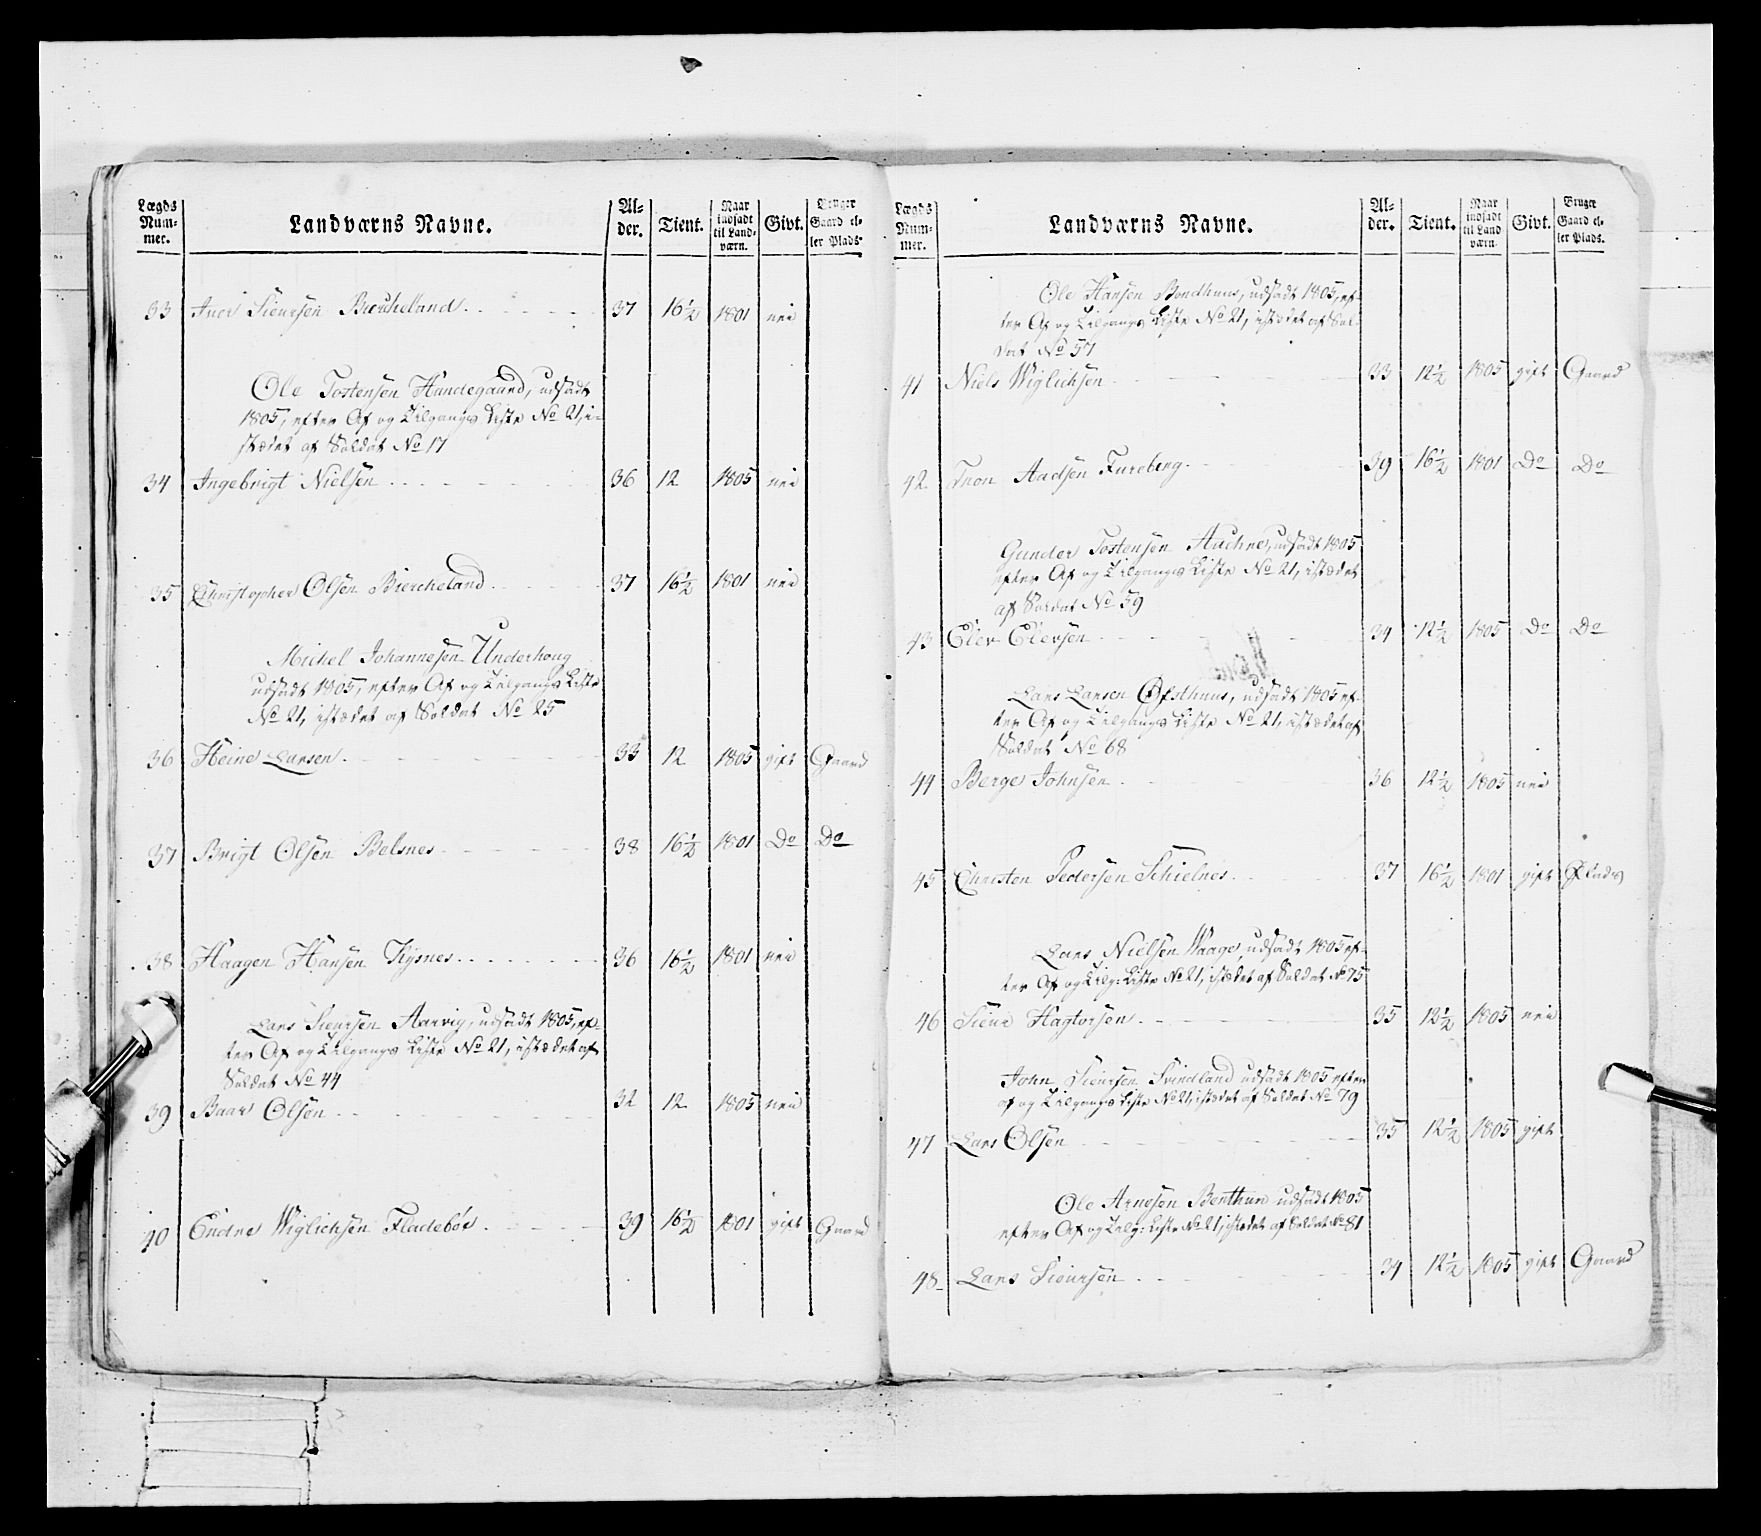 Lægds Num-mer. Landværns Navne. Al-der. Tient. Naar indsadt til Land-værn. Givt. Bruger Gaard el-ler Plads.
33 Iver Siursen Bircheland 37 16½ 1801 nei
Ole Tostensen Handegaard, udsadt
1805, efter Af og Tilgangs Liste No 21, i-
stædet af Soldat No 17
34 Ingebrigt Nielsen 36 12 1805 nei
35 Christopher Olsen Biercheland 37 16½ 1801 nei
Michel Johannesen Underhoug
udsadt 1805, efter Af og Tilgangs Liste
No 21, istædet af Soldat No 25
36 Heine Larsen 33 12 1805 gift Gaard
37 Brigt Olsen Belsnes 38 16½ 1801 Do Do
38 Haagen Hansen Kysnes 36 16½ 1801 nei
Lars Siursen Aarvig, udsadt 1805, ef-
ter Af og Tilgangs Liste No 21, istædet af
Soldat No 44
39 Baar Olsen 32 12 1805 nei
40 Endre Wiglichsen Fladebøe 39 16½ 1801 gift Gaard
Lægds Num-mer. Landværns Navne. Al-der. Tient. Naar indsadt til Land værn. Givt. Bruger Gaard el-ler Plads.
Ole Hansen Bondhuus, udsadt 1805, ef-
ter Af og Tilgangs Liste No 21, istædet af Sol-
dat No 57
41 Niels Wiglichsen 33 12½ 1805 gift Gaard
42 Tron Aadsen Fureberg 39 16½ 1801 Do Do
Gunder Tostensen Aachre, udsadt 1805
efter Af og Tilgangs Liste No 21, istædet
af Soldat No 59
43 Elev Elevsen 34 12½ 1805 Do Do
Lars Larsen Øfsthuus, udsadt 1805 ef-
ter Af og Tilgangs Liste No 21, istædet af
Soldat No 68
44 Berge Johnsen 36 12½ 1805 nei
45 Christen Pedersen Schielnes 37 16½ 1801 gift Plads
Lars Nielsen Waage, udsadt 1805 ef-
ter Af og Tilg: Liste No 21, istædet af Soldat No 75
46 Siur Hagtorsen 35 12½ 1805 nei
John Siursen Svindland udsadt 1805 efter
af og Tilgangs Liste No 21, istædet af Soldat No 79
47 Lars Olsen 35 12½ 1805 gift
Ole Arnesen Benthun udsadt 1805
efter Af og Tilg: Liste No 21, istædet af Soldat No 81
48 Lars Siursen 34 12½ 1805 gift Gaard